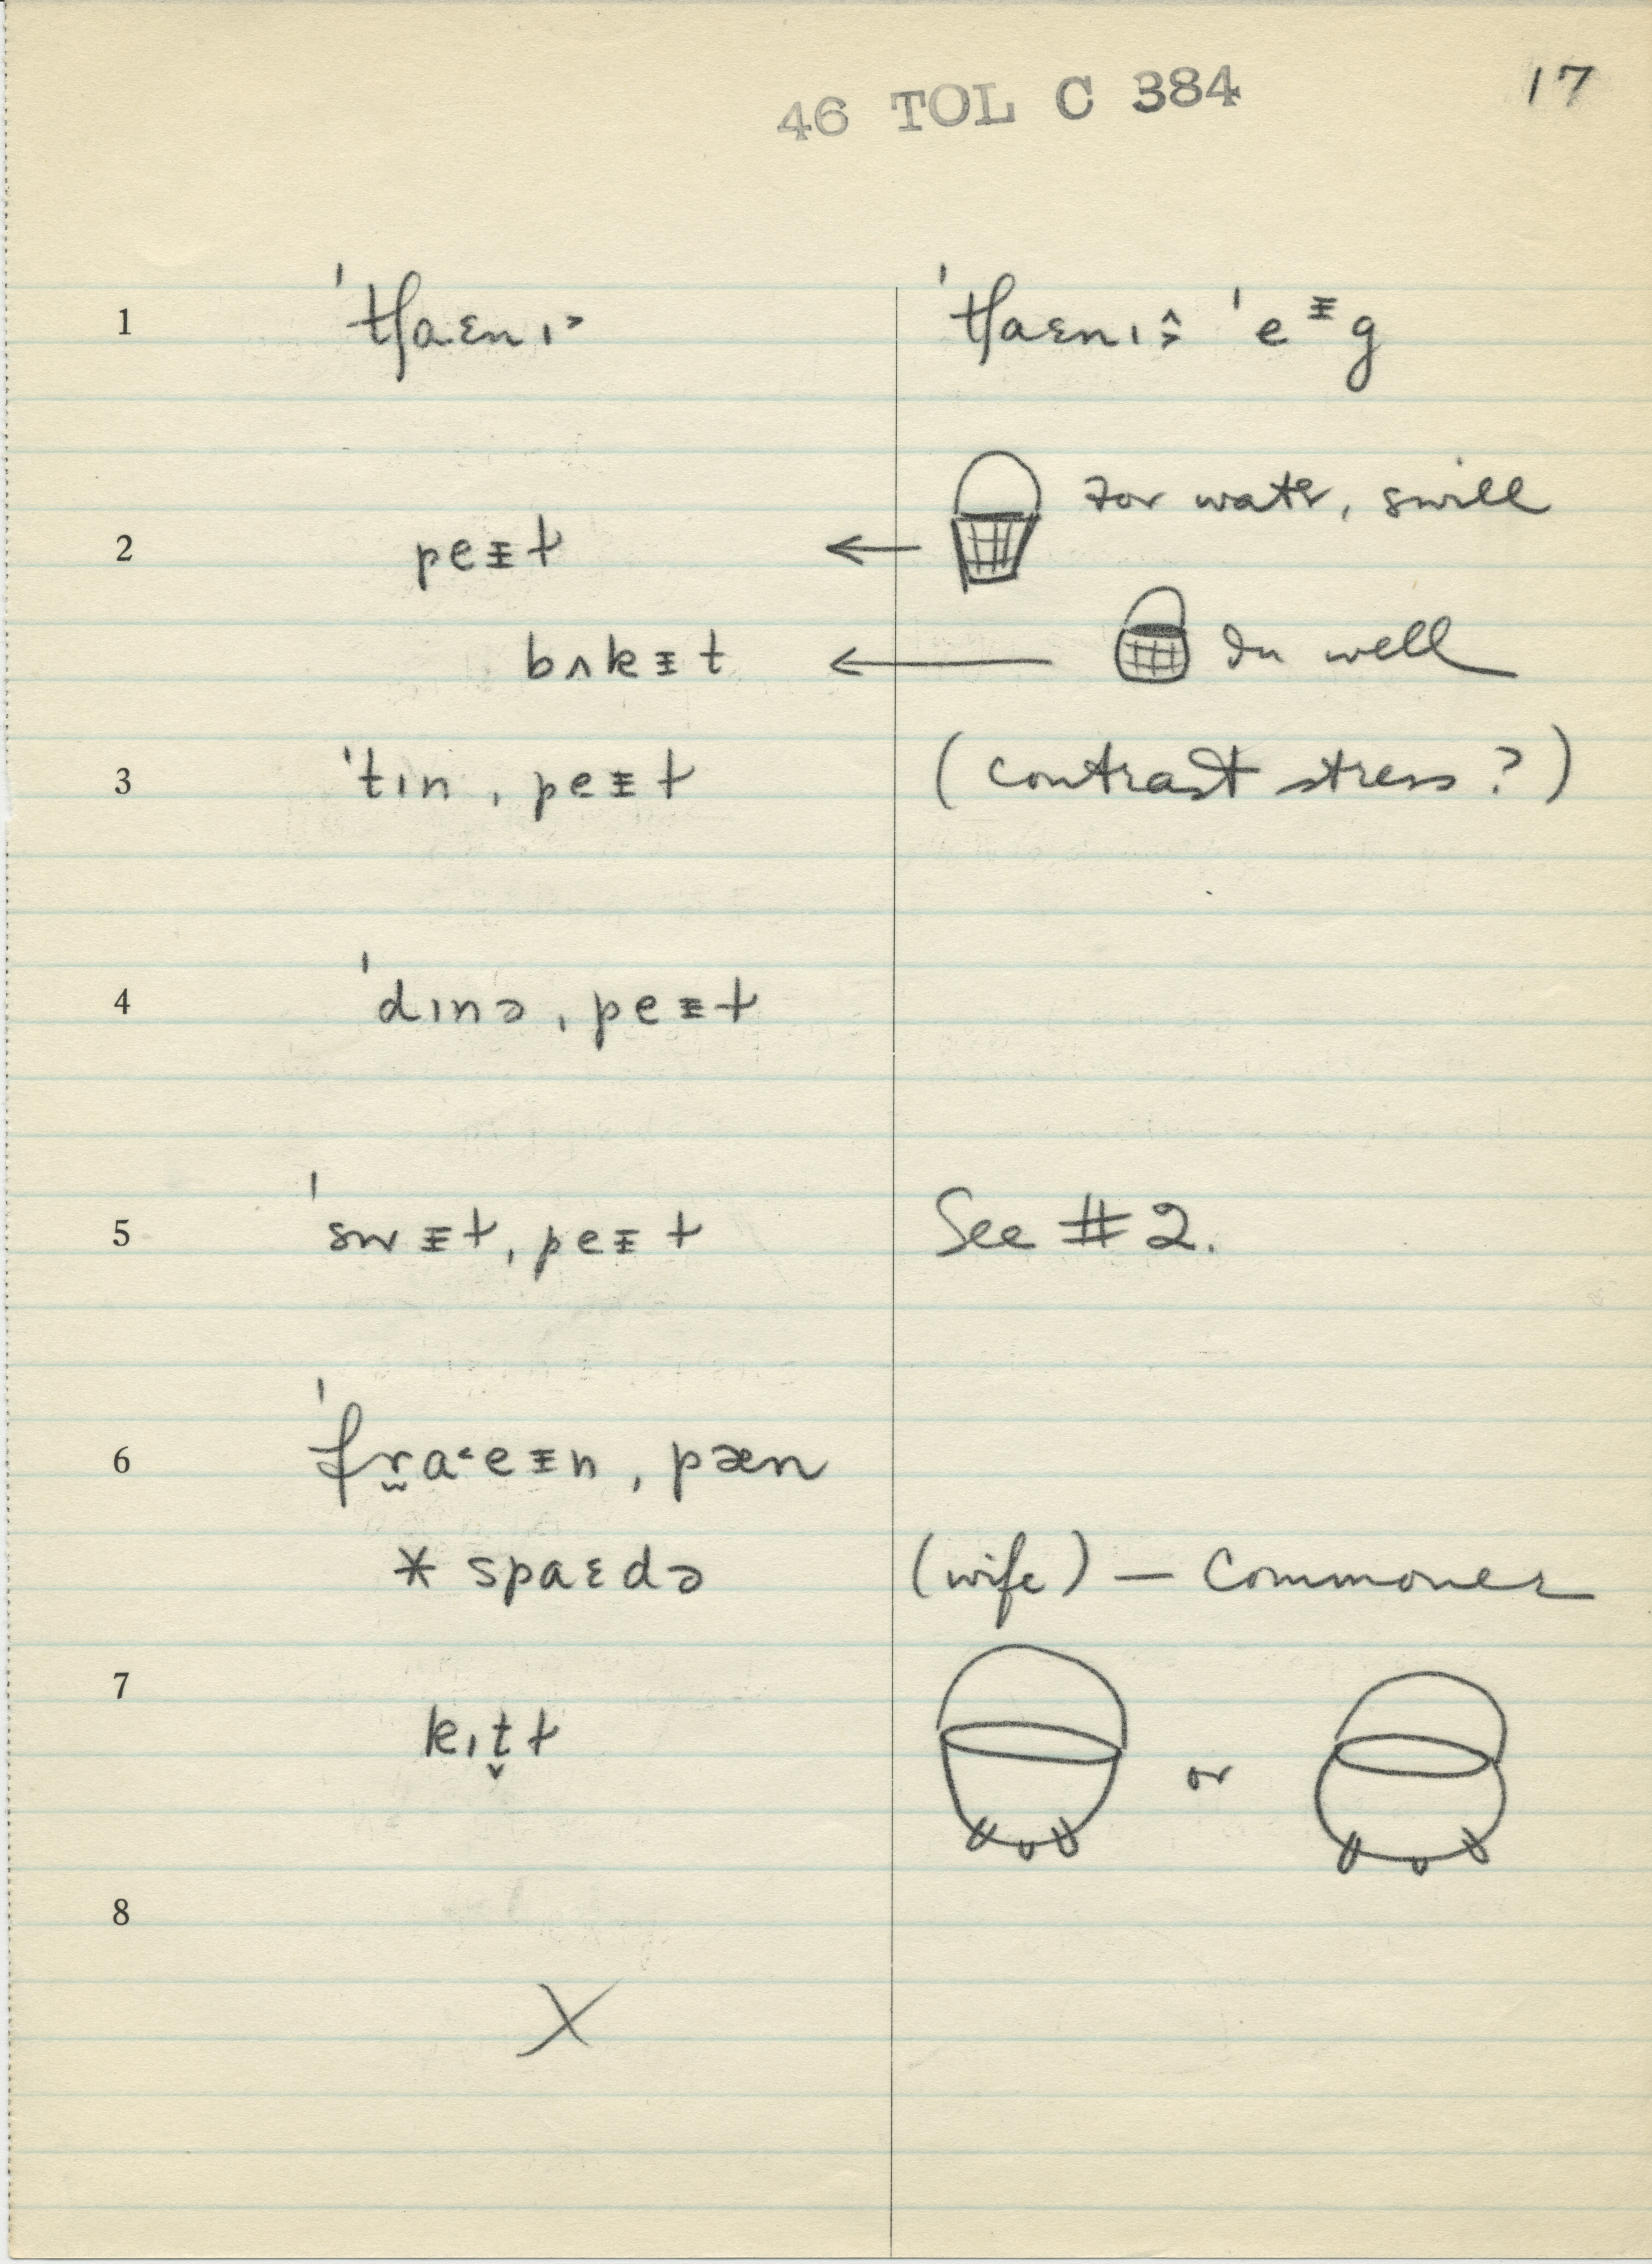 46 TOL C 384 17
1 ˈtʃaɛnɪ˃ ˈtʃaɛnɪ˃̂ ˈeᵻg
2 peᵻɫ ← For water, swill
bʌkᵻt ← In well
3 ˈtɪnˌpeᵻɫ (contrast stress?)
4 ˈdɪnəˌpeᵻɫ
5 ˈswᵻɫˌpeᵻɫ See #2.
6 ˈfr̬a˂eᵻnˌpæn
* spaɛdə (wife) — Commoner
7 kɪt̬ɫ or
8
X